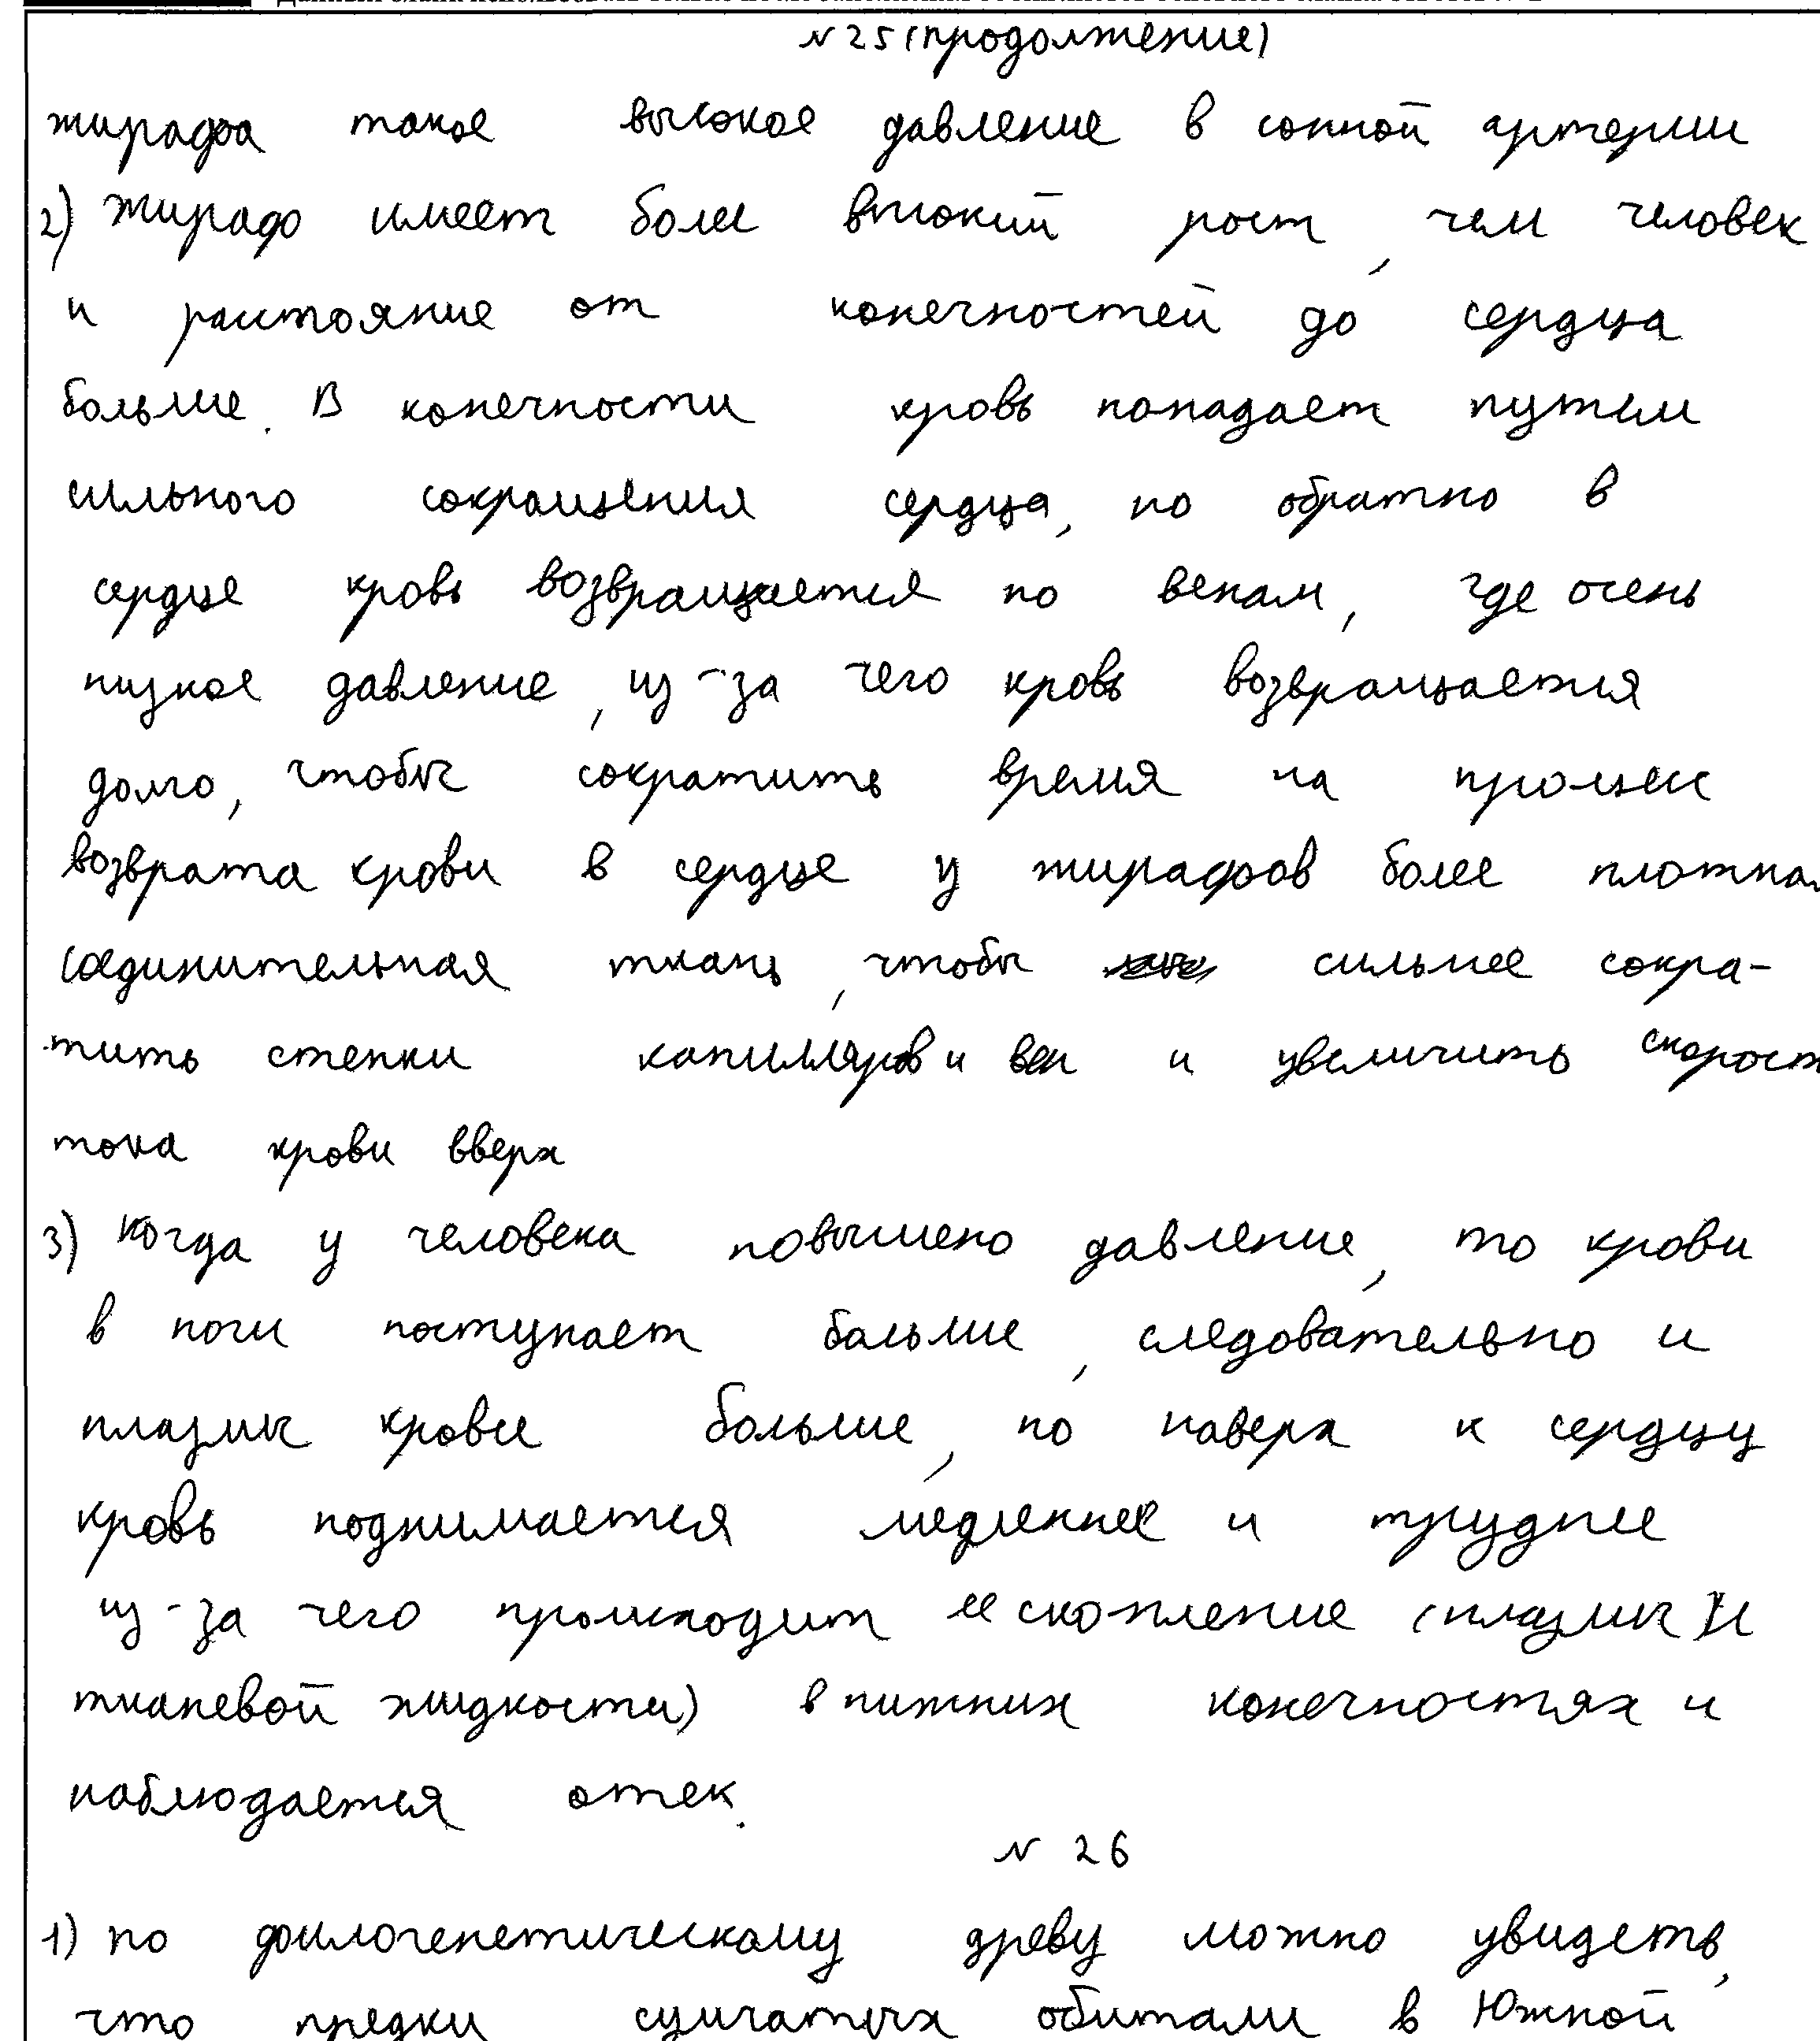 № 25 (продолжение)
жирафа такое высокое давление в сонной артерии
2) Жираф имеет более высокий рост, чем человек
и расстояние от конечностей до сердца
больше. В конечности кровь попадает путем
сильного сокращения сердца, но обратно в
сердце кровь возвращается по венам, где очень
низкое давление, из-за чего кровь возвращается
долго, чтобы сократить время на процесс
возврата крови в сердце у жирафов более плотная
соединительная ткань, чтобы сильнее сокра-
тить стенки капилляров и вен и увеличить скорост
тока крови вверх
3) Когда у человека повышено давление, то крови
в ноги поступает больше, следовательно и
плазмы крови больше, но наверх к сердцу
кровь поднимается медленнее и труднее
из-за чего происходит ее скопление (плазмы) и
тканевой жидкости) в нижних конечностях и
наблюдается отек.
№ 26
1) по филогенетическому древу можно увидеть,
что предки сумчатых обитали в Южной